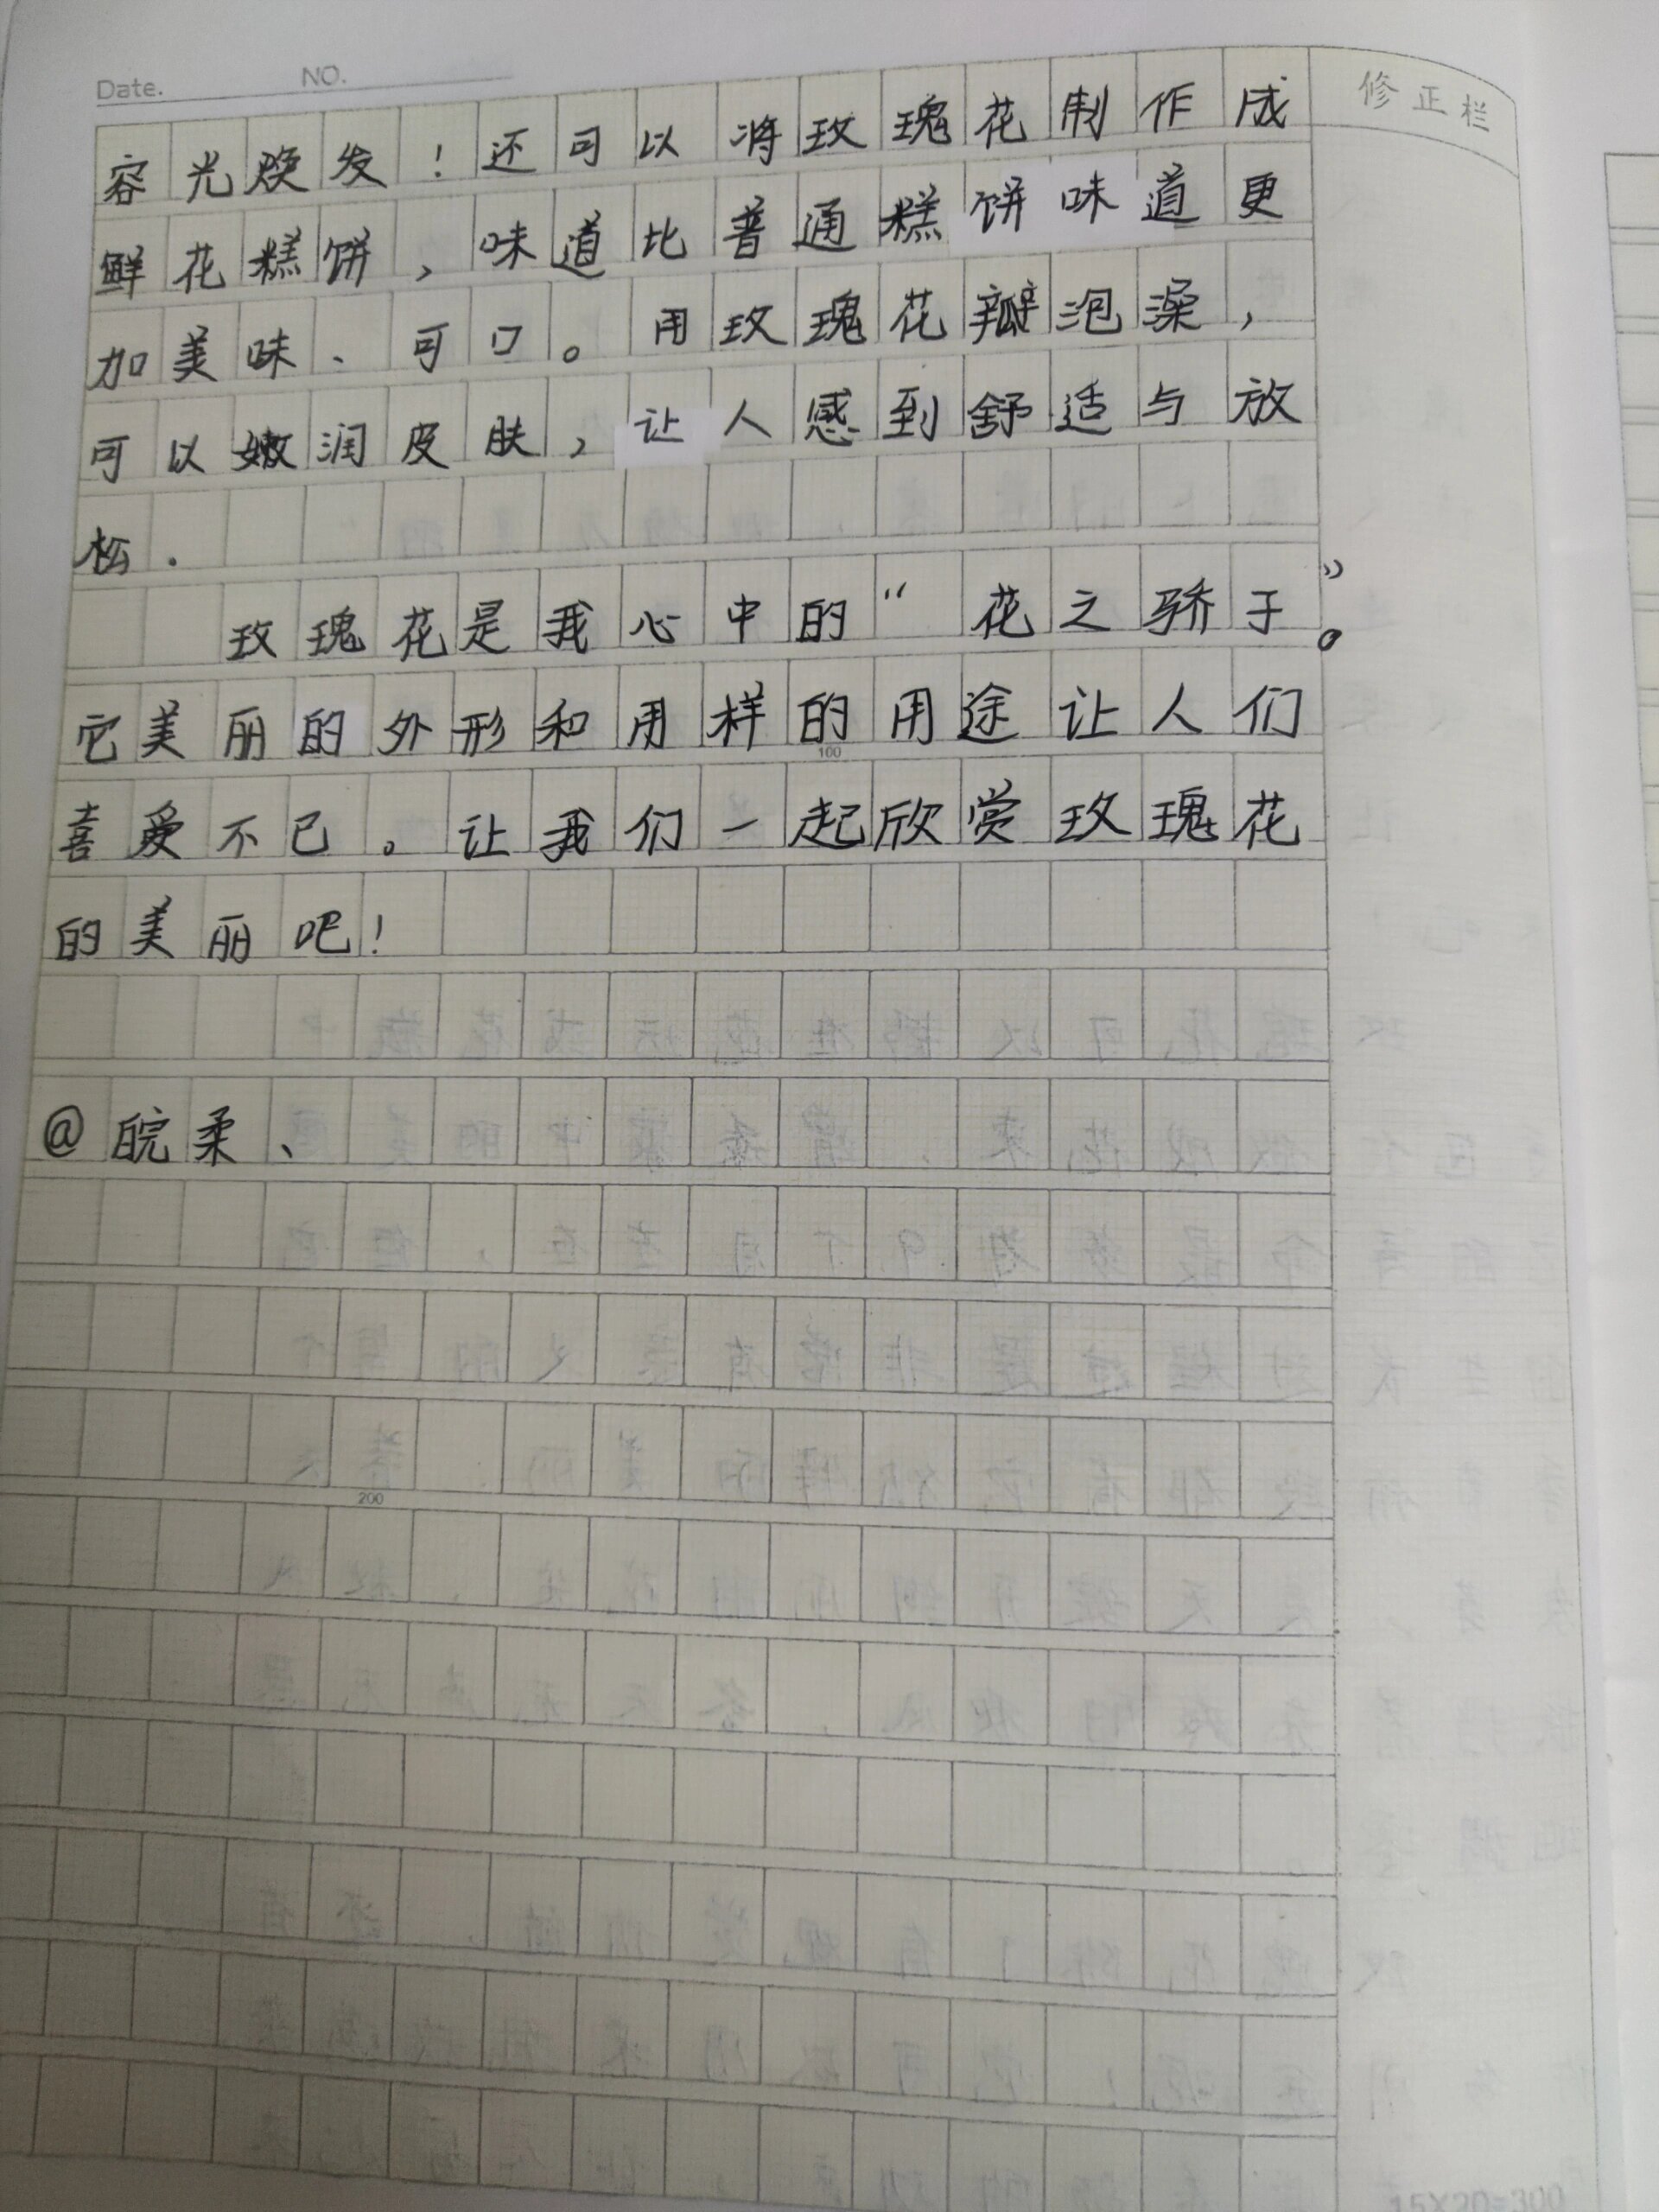 Date. NO.
修正栏
容光焕发！还可以将玫瑰花制作成
鲜花糕饼，味道比普通糕饼味道更
加美味、可口。用玫瑰花瓣泡澡，
可以嫩润皮肤，让人感到舒适与放
松.
玫瑰花是我心中的“花之骄子”。
它美丽的外形和用样的用途让人们
喜爱不已。让我们一起欣赏玫瑰花
的美丽吧！
100
@皖柔、
200
15X20=300